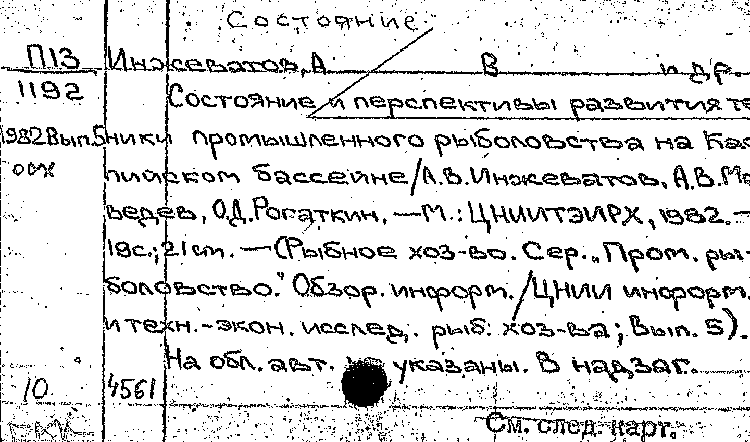 Состояние
П13 Инжеватов, А В и др.
1192 Состояние и перспективы развития те
1982 Вып.5 ники промышленного рыболовства на Кас
осх пийском бассейне/А.В.Инжеватов, А.В.Ме
ведев, О.Д.Рогаткин. —М.: ЦНИИТЭИРХ, 1982. —
19с.; 21 см. — (Рыбное хоз-во. Сер. „Пром. ры-
боловство." Обзор. информ. /ЦНИИ информ.
и техн.-экон. исслед. рыб. хоз-ва; Вып. 5).
На обл. авт. не указаны. В надзаг.
10 4561
См. след. карт.